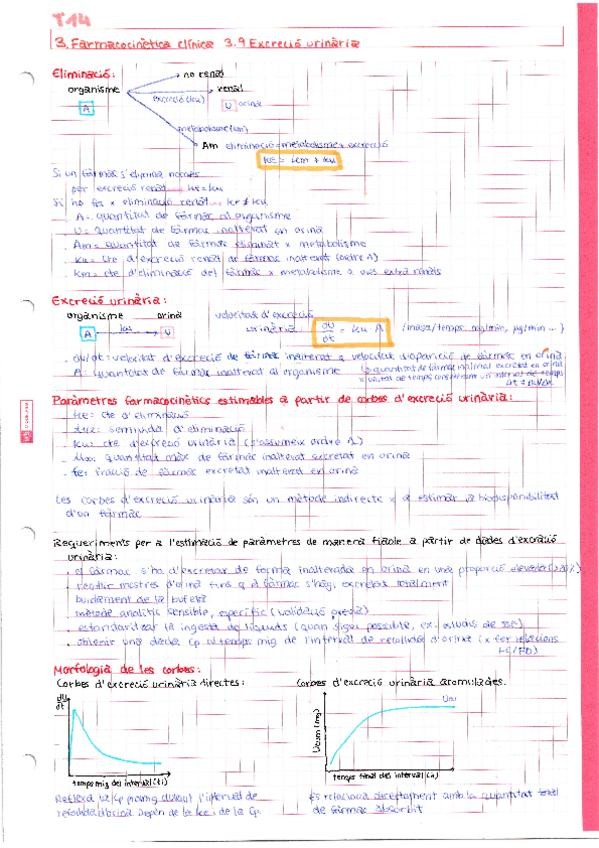 T14
3. Farmacocinètica clínica 3.9 Excreció urinària
Eliminació:
no renal
organisme
renal
excreció (ku)
A
U orina
metabolisme (km)
Am eliminació = metabolisme + excreció
KE = km + ku
Si un fàrmac s'elimina només
per excreció renal ke = ku
Si ho fa x eliminació renal ke ≠ ku
A = quantitat de fàrmac al organisme
U = quantitat de fàrmac inalterat en orina
Am = quantitat de fàrmac eliminat x metabolisme
Ku = cte d'excreció renal de fàrmac inalterat (ordre 1)
Km = cte d'eliminació del fàrmac x metabolisme o vies extra renals
Excreció urinària:
organisme orina velocitat d'excreció
A ku U urinària dU/dt = ku · A (massa/temps, mg/min, µg/min ...)
dU/dt: velocitat d'excreció de fàrmac inalterat o velocitat d'aparició de fàrmac en orina
A: quantitat de fàrmac inalterat al organisme
quantitat de fàrmac inalterat excretat en orina
Paràmetres farmacocinètics estimables a partir de corbes d'excreció urinària:
KE: cte d'eliminació
semivida d'eliminació
Ku: cte d'excreció urinària (s'assumeix ordre 1)
quantitat màx de fàrmac inalterat excretat en orina
fe: fració de fàrmac excretat inalterat en orina
Les corbes d'excreció urinària són un mètode indirecte x a estimar la biodisponibilitat
d'un fàrmac
Requeriments per a l'estimació de paràmetres de manera fiable a partir de dades d'excreció
urinària:
el fàrmac s'ha d'excretar de forma inalterada en orina en una proporció elevada
recollir mostres d'orina fins q el fàrmac s'hagi excretat totalment
buidament de la bufeta
mètode analític sensible, específic (validació prèvia)
estandaritzar la ingesta de líquids (quan sigui possible, ex: estudis de
obtenir una dada Cp al temps mig de l'interval de recollida d'orina (x fer relacions
Morfologia de les corbes:
Corbes d'excreció urinària directes: Corbes d'excreció urinària acumulades.
dU/dt
U∞
Ucum (mg)
temps mig del interval (ti) temps final del interval
Reflexa la Cp promig durant l'interval de
recollida d'orina. Depèn de la ke i de la Cp.
És relaciona directament amb la quantitat total
de fàrmac absorbit